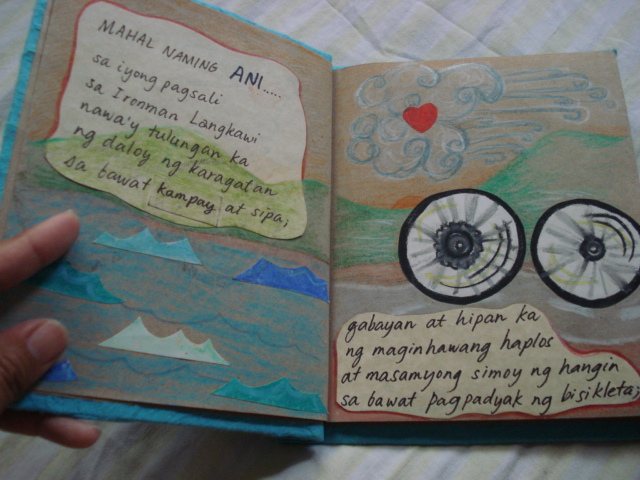 MAHAL NAMING ANI.....
sa iyong pagsali
sa Ironman Langkawi
nawa'y tulungan ka
ng daloy ng karagatan
sa bawat kampay at sipa;
gabayan at hipan ka
ng maginhawang haplos
at masamyong simoy ng hangin
sa bawat pagpadyak ng bisikleta;